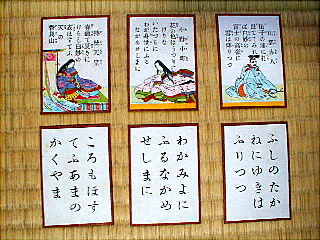 山辺赤人
田子の浦に
富士の高嶺に
雪は降りつつ
小野小町
花の色はうつりに
けりな
いたづらに
わが身世にふる
ながめせしまに
持統天皇
春過ぎて夏来に
けらし白妙の
衣ほすてふ
天の
香具山
ふしのたか
ねにゆきは
ふりつつ
わかみよに
ふるなかめ
せしまに
ころもほす
てふあまの
かくやま